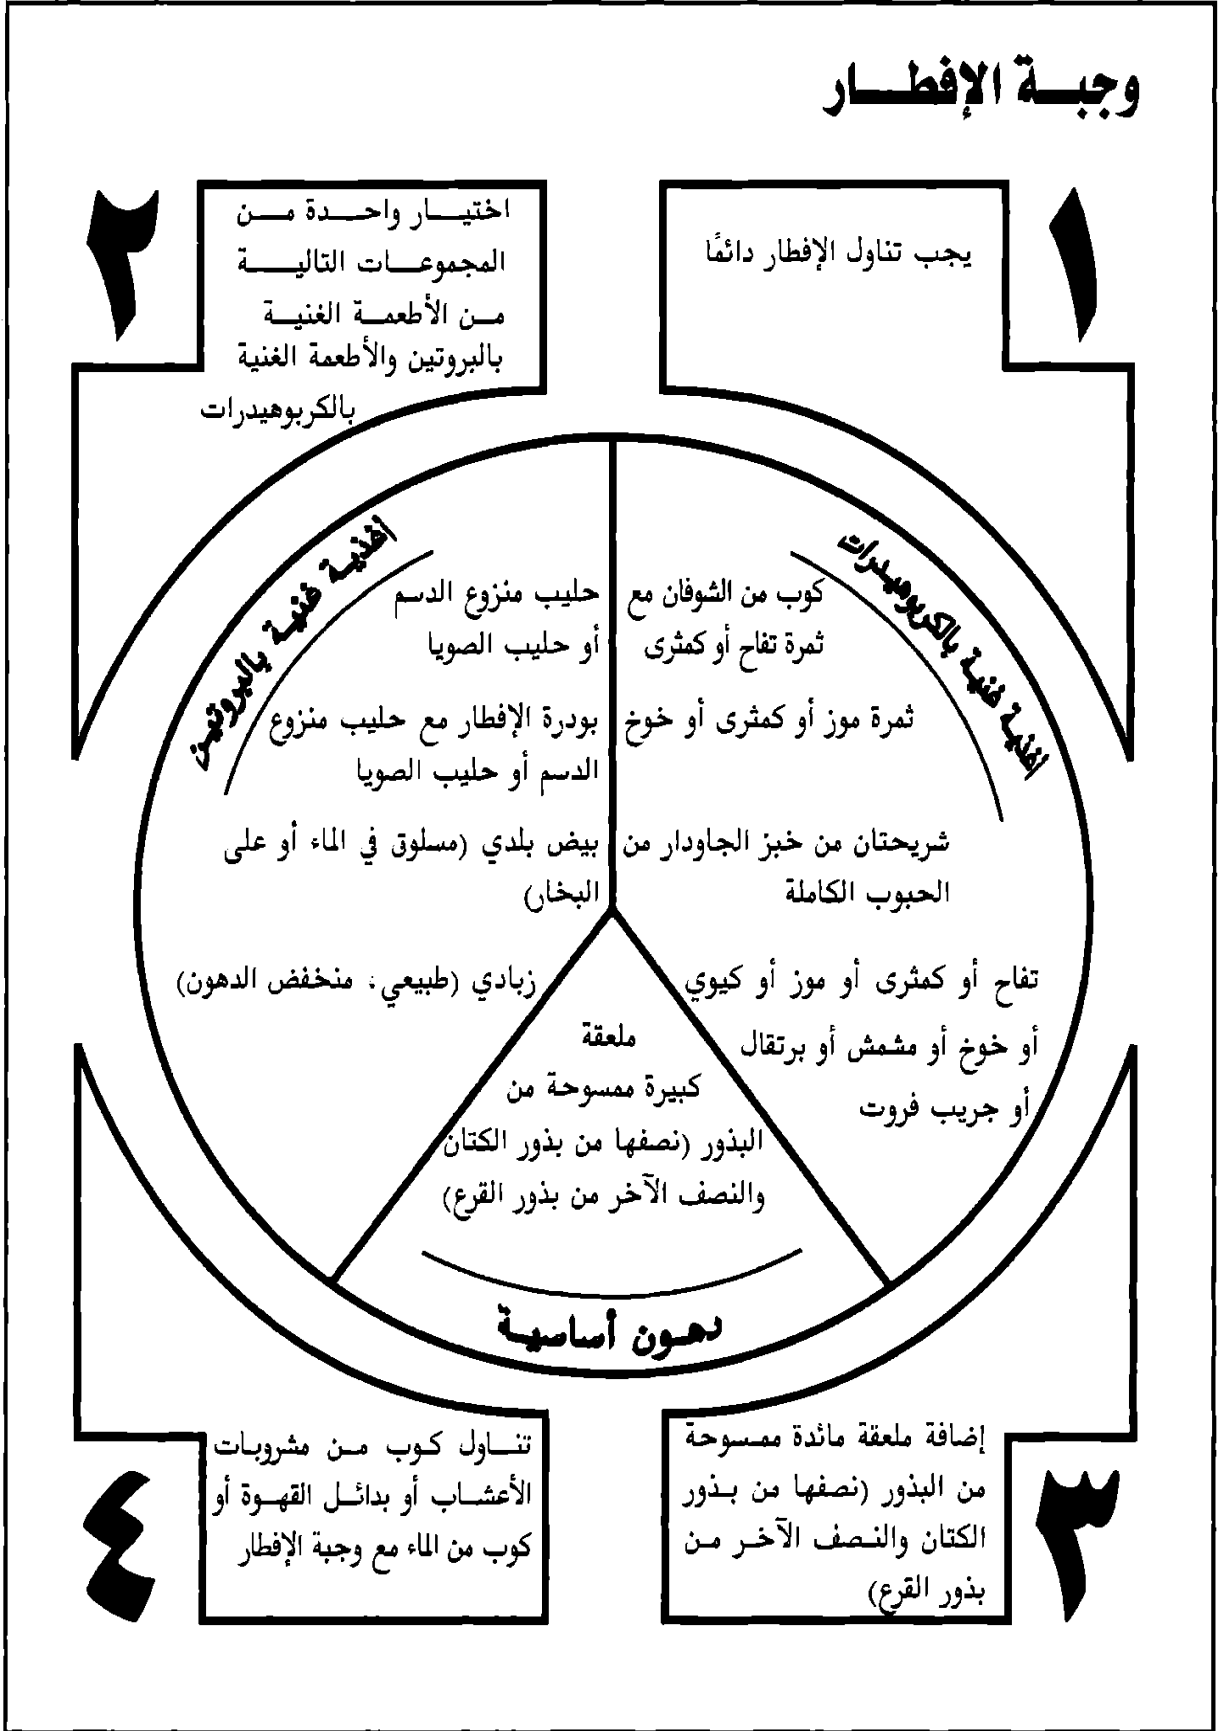 وجبة الإفطار
١
يجب تناول الإفطار دائمًا
٢
اختيار واحدة من
المجموعات التالية
من الأطعمة الغنية
بالبروتين والأطعمة الغنية
بالكربوهيدرات
أغذية غنية بالكربوهيدرات
كوب من الشوفان مع
ثمرة تفاح أو كمثرى
ثمرة موز أو كمثرى أو خوخ
شريحتان من خبز الجاودار من
الحبوب الكاملة
تفاح أو كمثرى أو موز أو كيوي
أو خوخ أو مشمش أو برتقال
أو جريب فروت
أغذية غنية بالبروتين
حليب منزوع الدسم
أو حليب الصويا
بودرة الإفطار مع حليب منزوع
الدسم أو حليب الصويا
بيض بلدي (مسلوق في الماء أو على
البخار)
زبادي (طبيعي، منخفض الدهون)
ملعقة
كبيرة ممسوحة من
البذور (نصفها من بذور الكتان
والنصف الآخر من بذور القرع)
دهون أساسية
٣
إضافة ملعقة مائدة ممسوحة
من البذور (نصفها من بذور
الكتان والنصف الآخر من
بذور القرع)
٤
تناول كوب من مشروبات
الأعشاب أو بدائل القهوة أو
كوب من الماء مع وجبة الإفطار